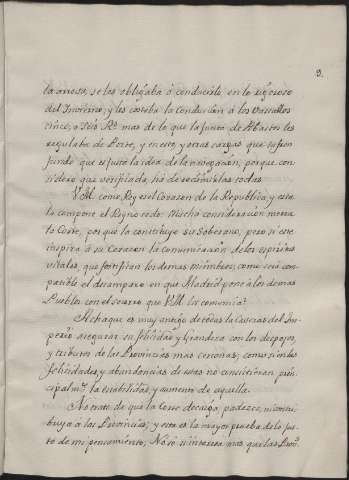 3.
la arrova, se les obligaba à conducirle en lo rigoroso
del Invierno, y les costaba la conducion à los Vassallos
cinco, o seis Rs mas de lo que la Junta de Abastos les
regulaba de Porte, y en esto, y otras cargas que sufren
fundo que es justa la idea de la navegacion, porque con
sidero que verificada, hà de redimirlos todas.
V.M. como Rey es el Corazon de la Republica, y este
lo compone el Reyno todo. Mucha consideracion merece
la Corte, por que la constituye su Soberano, pero si este
inspira à su Corazon la comunicacion de los espiritus
vitales, que fortifican los demas miembros; como serà com
patible el desamparo en que Madrid pone à los demas
Pueblos con el socorro que V.M. les comunica?
Achaque es muy antiguo de todas las Cabezas del Im
perio asegurar su felicidad y Grandeza con los despojos,
y tributos de las Provincias mas cercanas; como si en las
felicidades, y abundancias de estas no consistieran prin
cipalmte la estabilidad, y aumento de aquella.
No trato de que la Corte decaiga, padezca, ni contri
buya a las Provincias; y esta es la mayor prueba de lo jus
to de mi pensamiento; No se interesa mas que las Provs